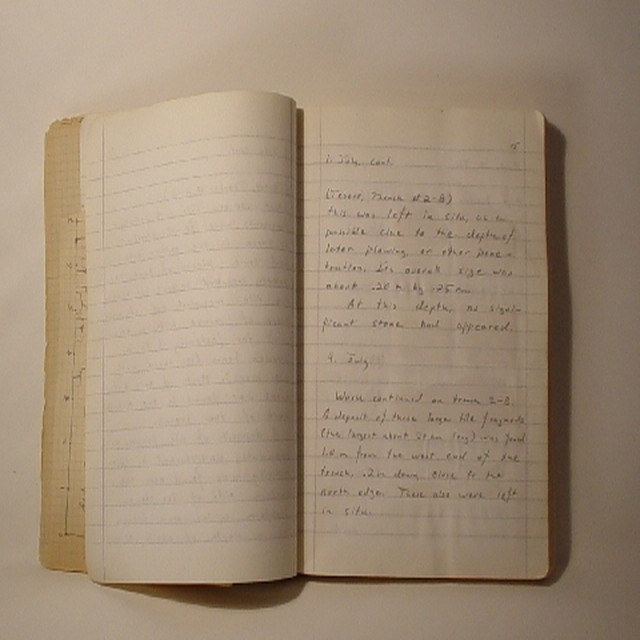 15
July cont.
(Tessor, Trench # 2-B)
this was left in situ, as a
possible clue to the depth of
later plowing or other pene-
tration. Its overall size was
about .20 m by .25 m.
At this depth, no signi-
ficant stones had appeared.
9. July
Work continued on trench 2-B.
A deposit of three larger tile fragments
(the largest about 21 cm long) was found
1.60 m from the west end of the
trench, .20 m down, close to the
north edge. These also were left
in situ.